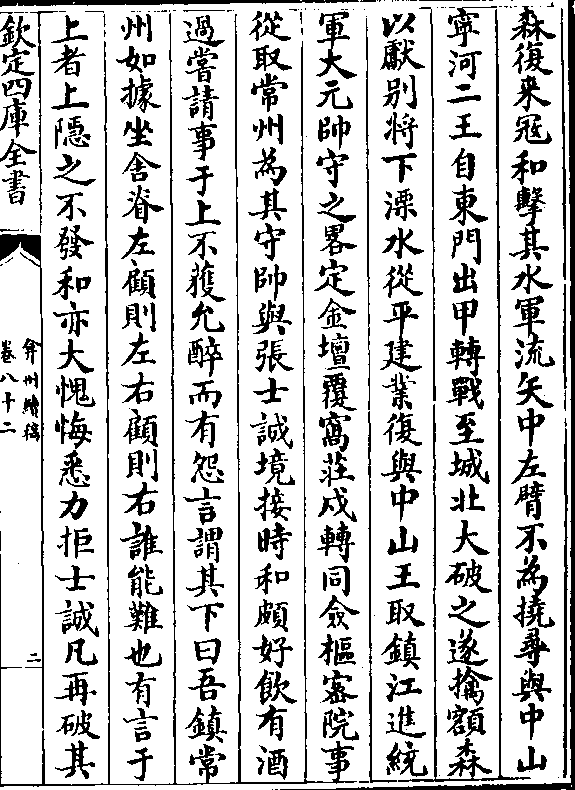 森復来冦和擊其水軍流矢中左臂不為撓尋與中山
寧河二王自東門出甲轉戰至城北大破之遂擒額森
以獻别將下溧水從平建業復與中山王取鎮江進統
軍大元帥守之畧定金壇覆窩莊戍轉同僉樞密院事
從取常州為其守帥與張士誠境接時和頗好飲有酒
過嘗請事于上不獲允醉而有怨言謂其下曰吾鎮常
州如據坐舎脊左顧則左右顧則右誰能難也有言于
上者上隱之不發和亦大愧悔悉力拒士誠凡再破其
欽定四庫全書
弇州續稿
卷八十二
二